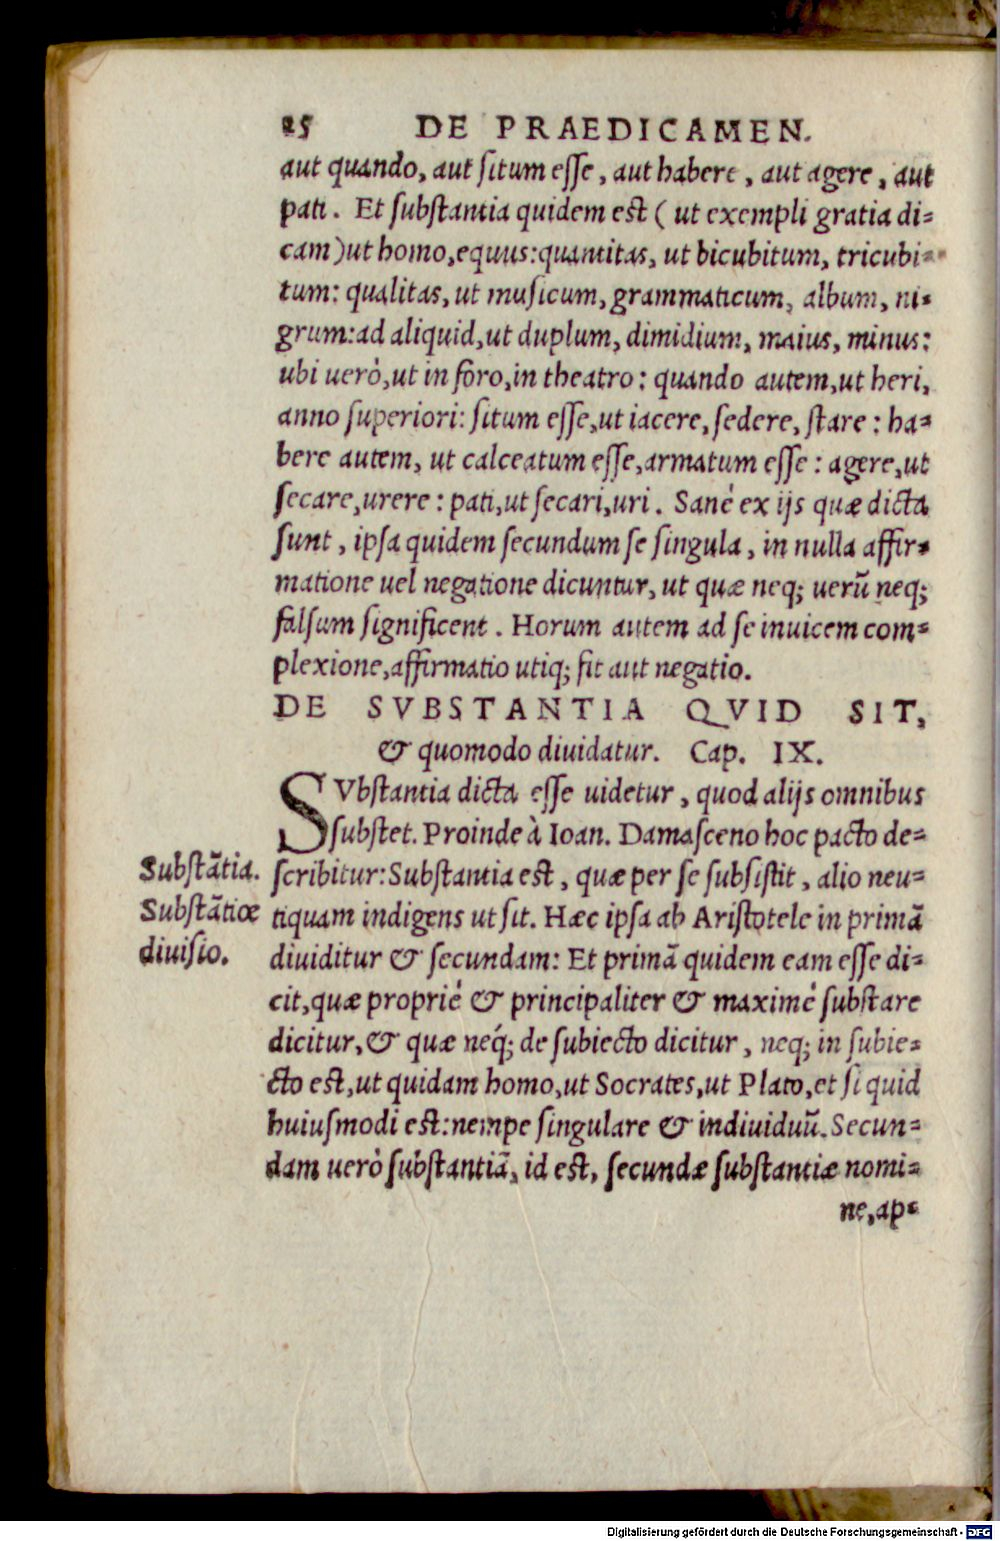 25 DE PRAEDICAMEN.
aut quando, aut ſitum eſſe, aut habere, aut agere, aut
pati. Et ſubſtantia quidem eſt (ut exempli gratia di-
cam) ut homo, equus: quantitas, ut bicubitum, tricubi-
tum: qualitas, ut muſicum, grammaticum, album, ni-
grum: ad aliquid, ut duplum, dimidium, maius, minus:
ubi uerò, ut in foro, in theatro: quando autem, ut heri,
anno ſuperiori: ſitum eſſe, ut iacere, ſedere, ſtare: ha-
bere autem, ut calceatum eſſe, armatum eſſe: agere, ut
ſecare, urere: pati, ut ſecari, uri. Sanè ex ijs quæ dicta
ſunt, ipſa quidem ſecundum ſe ſingula, in nulla affir-
matione uel negatione dicuntur, ut quæ neq; uerũ neq;
falſum ſignificent. Horum autem ad ſe inuicem com-
plexione, affirmatio utiq; fit aut negatio.
DE SVBSTANTIA QVID SIT,
& quomodo diuidatur. Cap. IX.
SVbſtantia dicta eſſe uidetur, quod alijs omnibus
ſubſtet. Proinde à Ioan. Damaſceno hoc pacto de-
Subſtãtia. ſcribitur: Subſtantia eſt, quæ per ſe ſubſiſtit, alio neu-
Subſtãtiæ tiquam indigens ut ſit. Hæc ipſa ab Ariſtotele in primã
diuiſio. diuiditur & ſecundam: Et primã quidem eam eſſe di-
cit, quæ propriè & principaliter & maximè ſubſtare
dicitur, & quæ neq́; de ſubiecto dicitur, neq; in ſubie-
cto eſt, ut quidam homo, ut Socrates, ut Plato, et ſi quid
huiuſmodi eſt: nempe ſingulare & indiuiduũ. Secun-
dam uerò ſubſtantiã, id eſt, ſecundæ ſubſtantiæ nomi-
ne, ap-
Digitalisierung gefördert durch die Deutsche Forschungsgemeinschaft - DFG